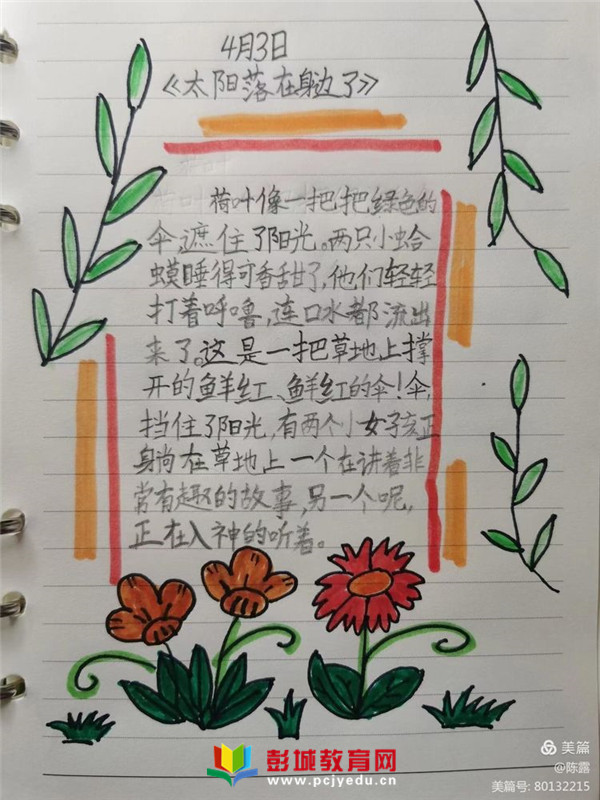 4月3日
《太阳落在身边了》
荷叶像一把把绿色的
伞,遮住了阳光。两只小蛤
蟆睡得可香甜了,他们轻轻
打着呼噜,连口水都流出
来了。这是一把草地上撑
开的鲜红、鲜红的伞!伞,
挡住了阳光,有两个小女孩正
身尚在草地上一个在讲着非
常有趣的故事,另一个呢,
正在入神的听着。
彭城教育网
www.pcjyedu.cn
美篇
@陈露
美篇号: 80132215